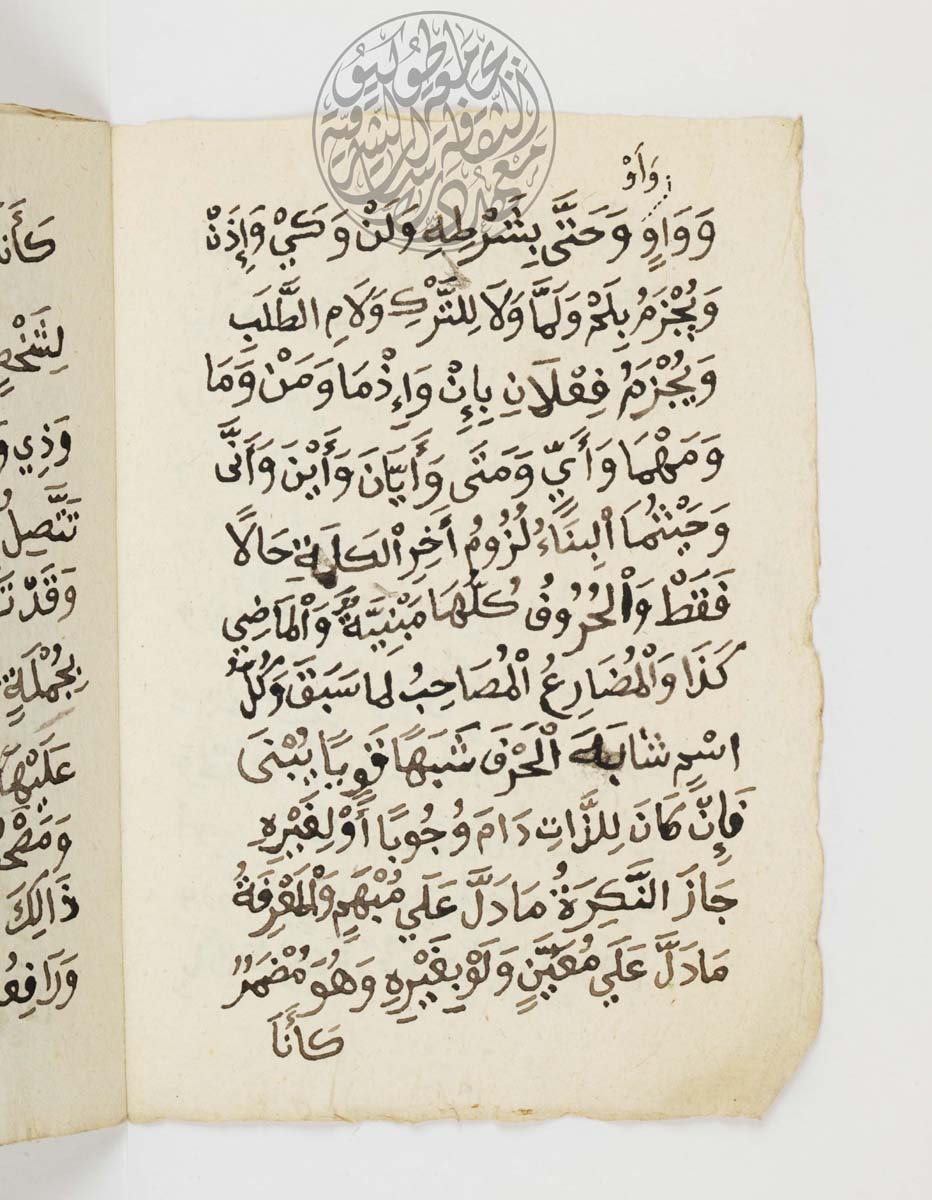 وَأَوْ
وَوَاوٍ وَحَتَّى بِشَرْطِهِ وَلَنْ وَكَيْ وَإِذَنْ
وَيُجْزَمُ بِلَمْ وَلَمَّا وَلَا لِلتَّرْكِ وَلَامِ الطَّلَبِ
وَيُجْزَمُ فِعْلَانِ بِإِنْ وَإِذْمَا وَمَنْ وَمَا
وَمَهْمَا وَأَيٍّ وَمَتَى وَأَيَّانَ وَأَيْنَ وَأَنَّى
وَحَيْثُمَا اَلْبِنَاءُ لُزُومُ أَخِرِ الْكَلِمَةِ حَالًا
فَقَطْ وَالْحُرُوفُ كُلُّهَا مَبْنِيَّةٌ وَالْمَاضِي
كَذَا وَالْمُضَارِعُ الْمُصَاحِبُ لما سَبَقَ وَكُلُّ
اسْمٍ شَابَهَ الْحَرْفَ شَبَهًا قَوِيًّا يُبْنَى
فَإِنْ كَانَ لِلزَّاتِ دَامَ وُجُوبًا أَوْ لِغَيْرِهِ
جَازَ النَّكِرَةُ مَادَلَّ عَلَي مُبْهَمٍ وَالْمَعْرِفَةُ
مَادَلَّ عَلَي مُعَيَّنٍ وَلَوْ بِغَيْرِهِ وَهُوَ مُضْمَرٌ
كَأَنَا
كَأَنَا
لِشَخْصٍ
وَذِي
تَتَّصِلُ
وَقَدْ
بِجُمْلَةٍ
عَلَيْهَا
ذَالِكَ